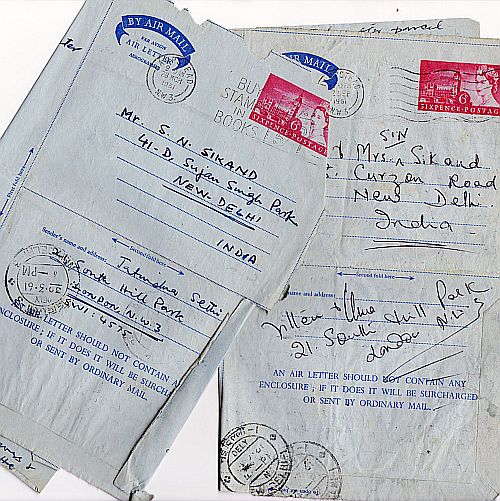 BY AIR MAIL
PAR AVION
AIR LETTER
AEROGRAMME
N.W.3.
1961
BUY
STAMPS
IN
BOOKS
6
SIXPENCE POSTAGE
Mr. S. N. SIKAND
41-D, Sujan Singh Park
NEW-DELHI
INDIA
second fold here
Sender's name and address:
Sethi
South Hill Park
LONDON. N.W.3
AN AIR LETTER SHOULD NOT CONTAIN ANY
ENCLOSURE; IF IT DOES IT WILL BE SURCHARGED
OR SENT BY ORDINARY MAIL.
parcel
BY AIR MAIL
1961
N.W.3
6
SIXPENCE POSTAGE
SIN
Mrs Sikand
Curzon Road
New Delhi
India
second fold here
name and address:
Uma
21. South Hill Park
London NW3
AN AIR LETTER SHOULD NOT CONTAIN ANY
ENCLOSURE; IF IT DOES IT WILL BE SURCHARGED
OR SENT BY ORDINARY MAIL.